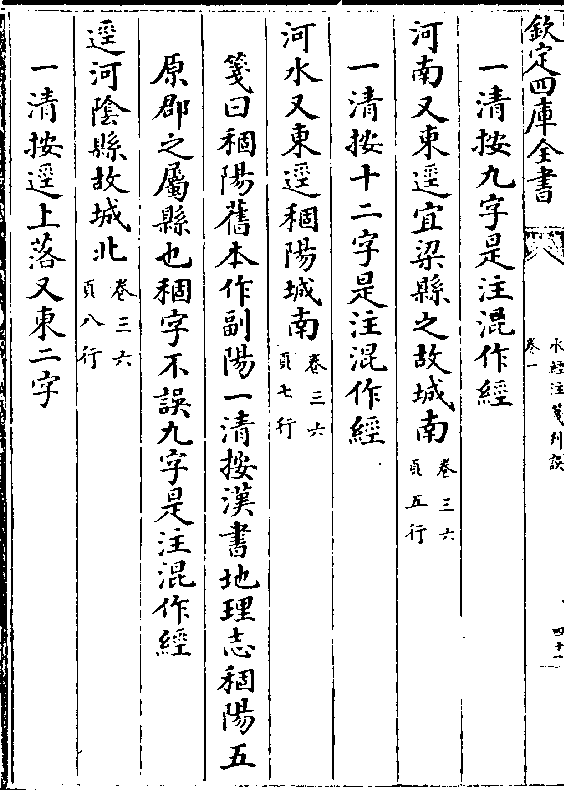 欽定四庫全書
水經注箋刊誤
卷一
一清按九字是注混作經
河南又東逕宜梁縣之故城南卷三六頁五行
一清按十二字是注混作經
河水又東逕稒陽城南卷三六頁七行
箋曰稒陽舊本作副陽一清按漢書地理志稒陽五
原郡之屬縣也稒字不誤九字是注混作經
逕河陰縣故城北卷三六頁八行
一清按逕上落又東二字